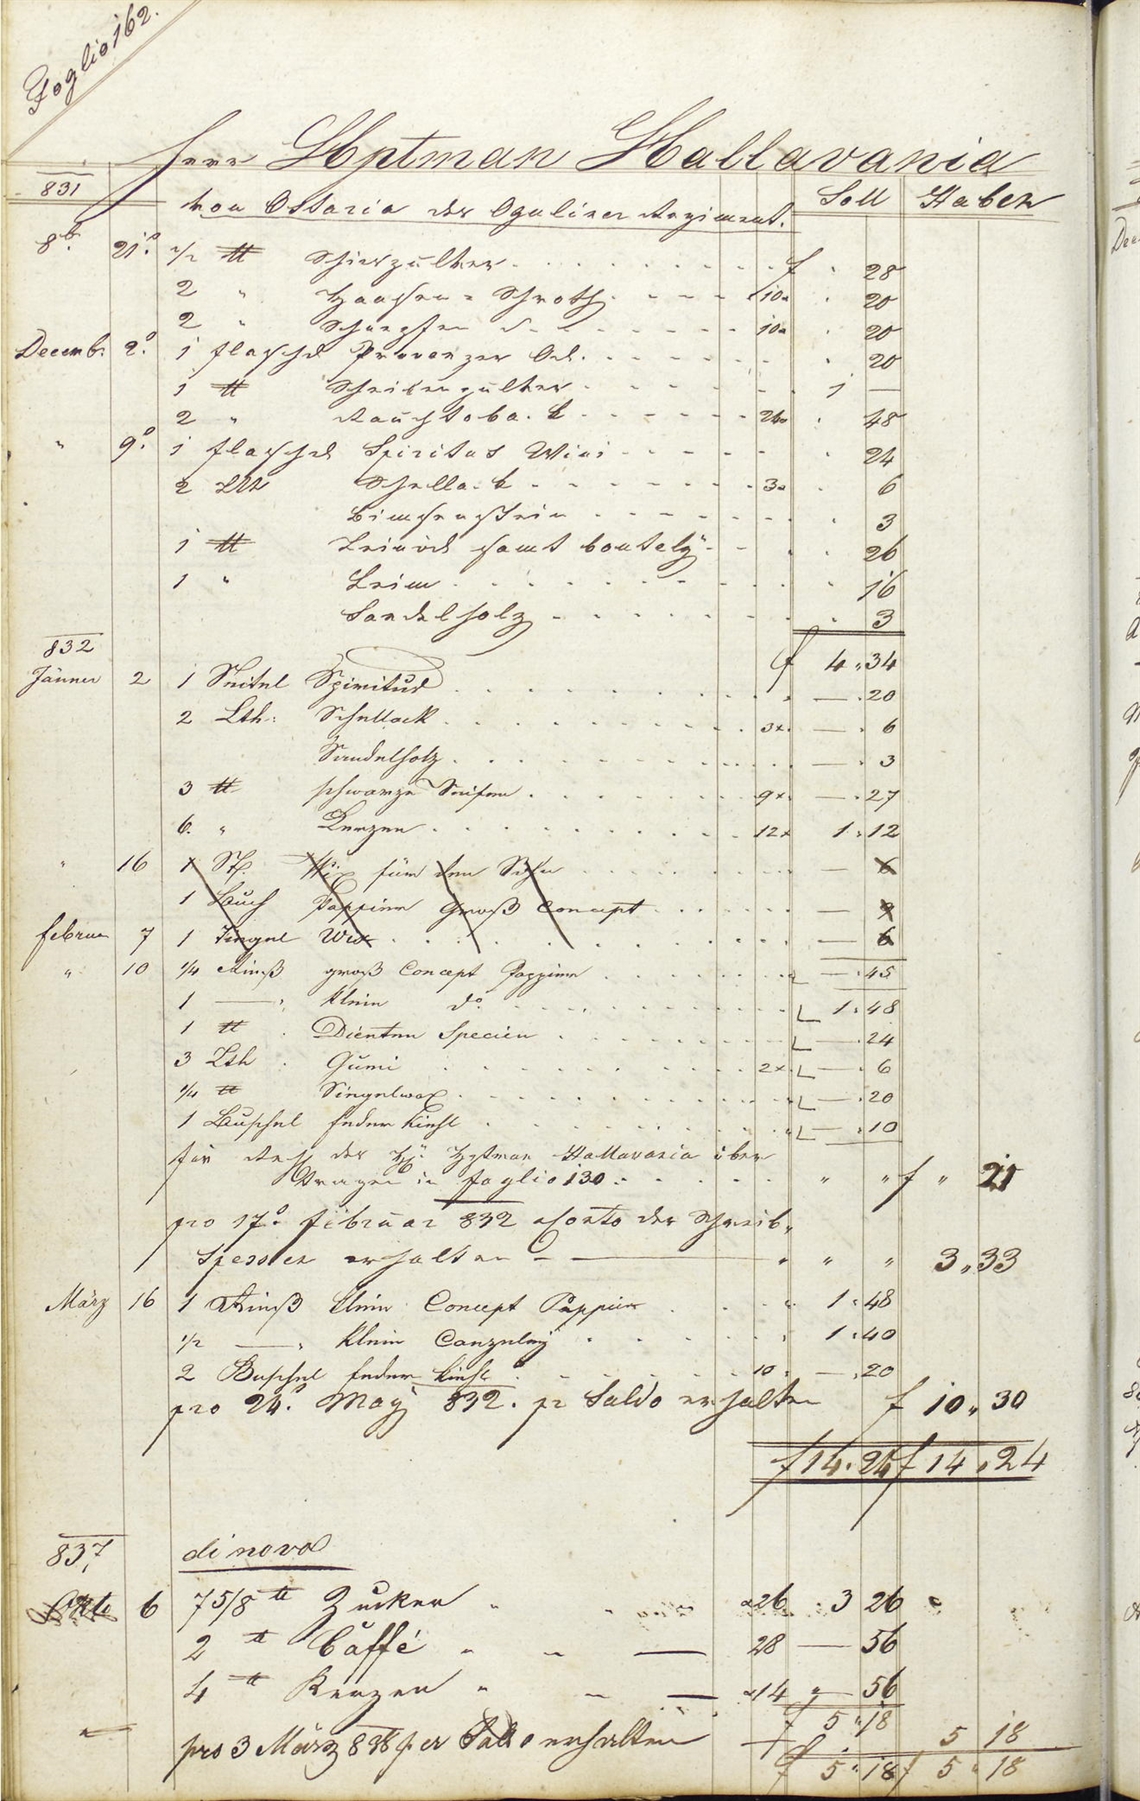 Foglio 162.
Herr Hptman Hallavania
831 von Ostaria des Oguliner Regiment. Soll Haben
8b. 21o. 1/2 ℔ f " 28
2 " Haasen = Schroth 10x " 20
2 " 10x " 20
Decemb. 2o. 1 flasche Provenzer Oel " 20
1 ℔ Scheibenpulver 1 —
2 " Rauchtoback 24x " 48
" 9o. 1 flasche Spiritus Wini " 24
2 Lth Schellack 3x " 6
Bimsenstein " 3
1 ℔ Leinöel samt " 26
1 " Leim " 16
Sandelholz " 3
f 4 " 34
832
Jänner 2 1 Seitel Spiritus — " 20
2 Lth: Schellack 3x — " 6
Sandelholz — " 3
3 ℔ schwarze Seifen 9x — " 27
6 " Kerzen 12x 1 " 12
" 16 1 St. für den — 6
1 Buch Pappier Groß Concept — 9
februar 7 1 Wix — 6
" 10 1/4 Rieß groß Concept Pappier — " 45
1 — " klein do. 1 " 48
1 ℔ Dienten Specien — " 24
3 Lth Gumi 2x — " 6
1/4 ℔ Singelwax — " 20
1 Buschel feder Kiehl — " 10
für der Hptman Hallavania über
tragen in foglio 130 " " f " 21
pro 17o. februar 832 Conto der Schreib"
Spessen erhalten — " " " 3 " 33
März 16 1 Rieß klein Concept Pappier 1 " 48
1/2 — " klein Canzeley 1 " 40
2 Buschel feder Kiehl 10 — " 20
pro 24o. May 832. pr Saldo erhalten f 10 " 30
f 14 " 24 f 14 " 24
837 di novo
6 7 5/8 ℔ Zucker " " a 26 " 3 26
2 ℔ Caffé " " — 28 — 56
4 ℔ Kerzen " " — a 14 " — 56
f 5 " 18
pro 3 März 838 per Saldo erhalten 5 18
f 5 " 18 f 5 " 18